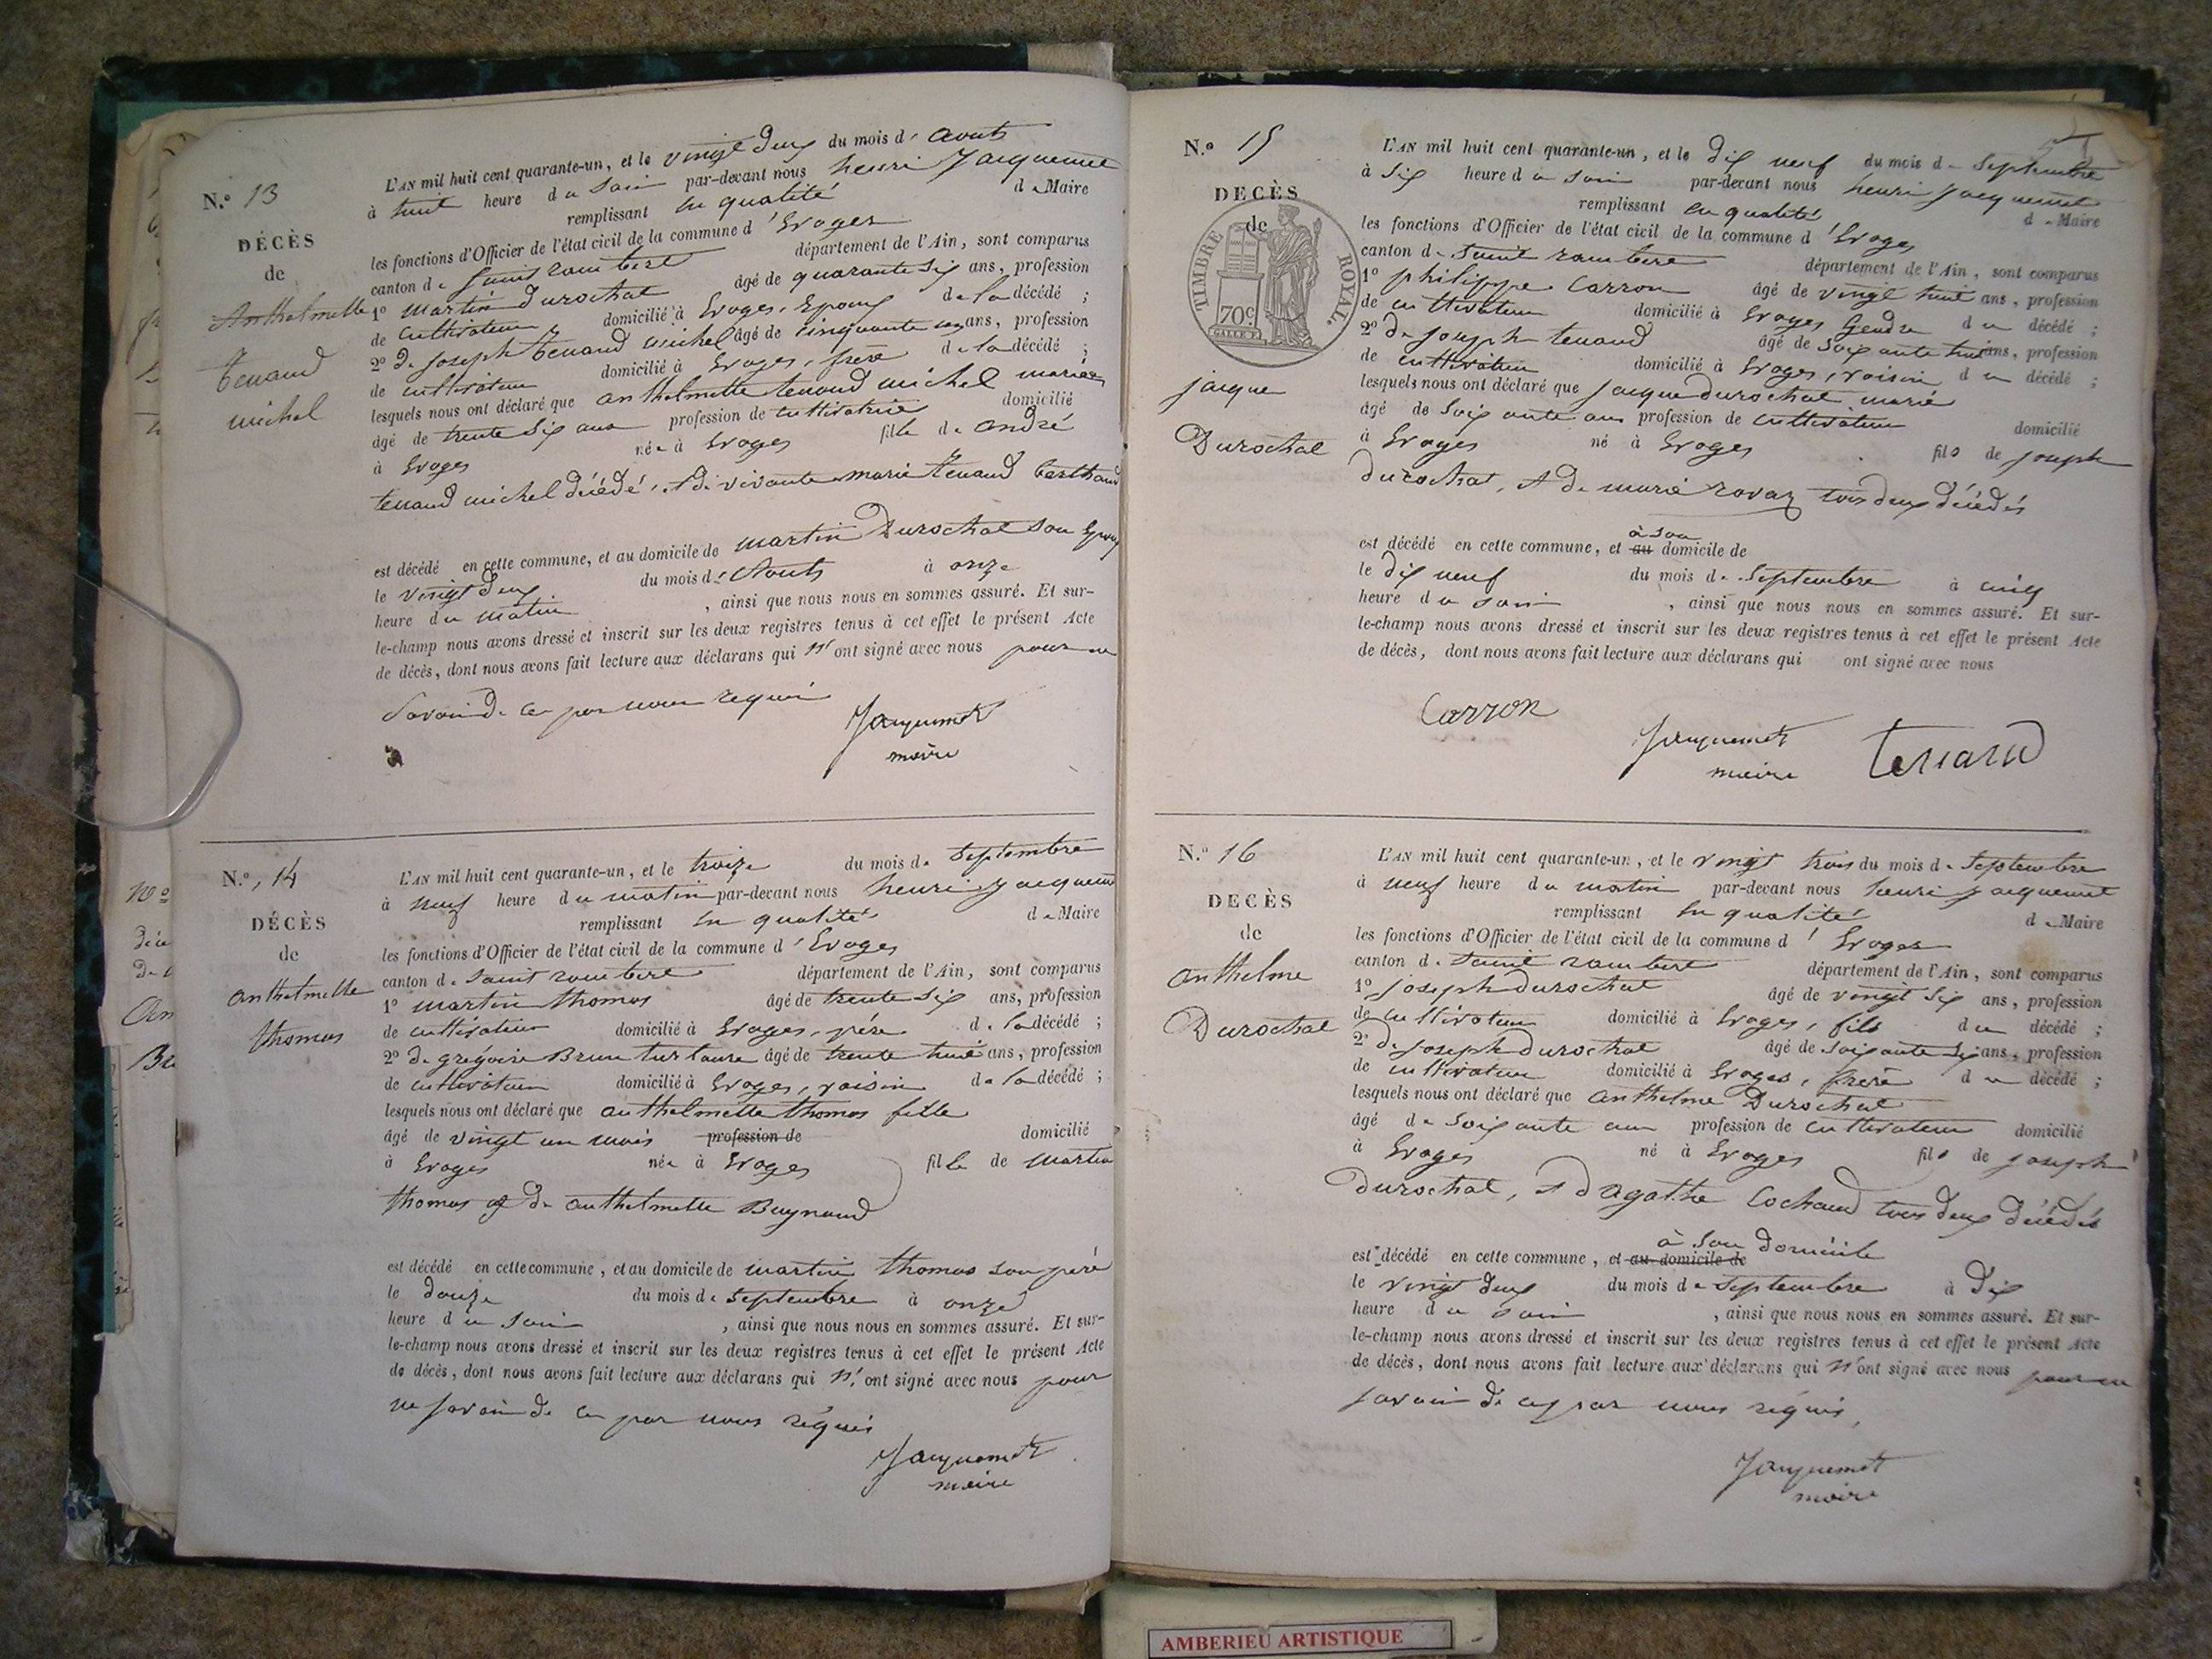 N.° 13
DÉCÈS
de
Anthelmette
tenand
michel
L'AN mil huit cent quarante-un, et le vingt deux du mois d' Aouts
à huit heure du soir par-devant nous henri Jacquemet
remplissant en qualité de Maire
les fonctions d'Officier de l'état civil de la commune d' Evoges
canton de Saint rambert département de l'Ain, sont comparus
1° martin Durochat âgé de quarante six ans, profession
de cultivateur domicilié à Evoges, Epoux de la décédé ;
2° de joseph tenand michel âgé de cinquante ans, profession
de cultivateur domicilié à Evoges, frère de la décédé ;
lesquels nous ont déclaré que anthelmette tenand michel mariée
âgé de trente six ans profession de cultivatrice domicilié
à Evoges née à Evoges fille de andré
tenand michel décédé, et de vivante marie tenand berthaud
est décédé en cette commune, et au domicile de martin Durochat son Epoux
le vingt deux du mois d' Aouts à onze
heure du matin , ainsi que nous nous en sommes assuré. Et sur-
le-champ nous avons dressé et inscrit sur les deux registres tenus à cet effet le présent Acte
de décès, dont nous avons fait lecture aux déclarans qui n'ont signé avec nous pour ne
Savoir de ce par nous requis
Jacquemet
maire
N.° 14
DÉCÈS
de
anthelmette
thomas
L'AN mil huit cent quarante-un, et le treize du mois de Septembre
à neuf heure du matin par-devant nous henri jacquemet
remplissant en qualité de Maire
les fonctions d'Officier de l'état civil de la commune d' Evoges
canton de Saint rambert département de l'Ain, sont comparus
1° martin thomas âgé de trente six ans, profession
de cultivateur domicilié à Evoges, père de la décédé ;
2° de grégoire Brun turlaure âgé de trente huit ans, profession
de cultivateur domicilié à Evoges, voisin de la décédé ;
lesquels nous ont déclaré que anthelmette thomas fille
âgé de vingt un mois profession de domicilié
à Evoges née à Evoges fille de martin
thomas et de anthelmette Buynand
est décédé en cette commune, et au domicile de martin thomas son père
le douze du mois de septembre à onze
heure du soir , ainsi que nous nous en sommes assuré. Et sur-
le-champ nous avons dressé et inscrit sur les deux registres tenus à cet effet le présent Acte
de décès, dont nous avons fait lecture aux déclarans qui n'ont signé avec nous pour
ne savoir de ce par nous réquis
Jacquemet
maire
N.° 15
DECÈS
de
TIMBRE ROYAL.
70c
jacque
Durochat
L'AN mil huit cent quarante-un, et le dix neuf du mois de Septembre
à six heure du soir par-devant nous henri jacquemet
remplissant en qualité de Maire
les fonctions d'Officier de l'état civil de la commune d' Evoges
canton de Saint rambert département de l'Ain, sont comparus
1° philippe Carron âgé de vingt huit ans, profession
de cultivateur domicilié à Evoges Gendre du décédé ;
2° de joseph tenand âgé de soixante huit ans, profession
de cultivateur domicilié à Evoges, voisin du décédé ;
lesquels nous ont déclaré que jacque durochat marié
âgé de soixante ans profession de cultivateur domicilié
à Evoges né à Evoges fils de joseph
durochat, et de marie ravaz tous deux décédés
à son
est décédé en cette commune, et au domicile de
le dix neuf du mois de Septembre à cinq
heure du soir , ainsi que nous nous en sommes assuré. Et sur-
le-champ nous avons dressé et inscrit sur les deux registres tenus à cet effet le présent Acte
de décès, dont nous avons fait lecture aux déclarans qui ont signé avec nous
Carron
Jacquemet
maire
tenand
N.° 16
DECÈS
de
anthelme
Durochat
L'AN mil huit cent quarante-un, et le vingt trois du mois de Septembre
à neuf heure du matin par-devant nous henri jacquemet
remplissant en qualité de Maire
les fonctions d'Officier de l'état civil de la commune d' Evoges
canton de Saint rambert département de l'Ain, sont comparus
1° joseph durochat âgé de vingt six ans, profession
de cultivateur domicilié à Evoges, fils du décédé ;
2° de joseph durochat âgé de soixante six ans, profession
de cultivateur domicilié à Evoges, frère du décédé ;
lesquels nous ont déclaré que anthelme Durochat
âgé de soixante ans profession de cultivateur domicilié
à Evoges né à Evoges fils de joseph
Durochat, et d'agathe Cochand tous deux décédés
à son domicile
est décédé en cette commune, et au domicile de
le vingt deux du mois de septembre à dix
heure du soir , ainsi que nous nous en sommes assuré. Et sur-
le-champ nous avons dressé et inscrit sur les deux registres tenus à cet effet le présent Acte
de décès, dont nous avons fait lecture aux déclarans qui n'ont signé avec nous pour ne
savoir de ce par nous réquis,
Jacquemet
maire
AMBERIEU ARTISTIQUE